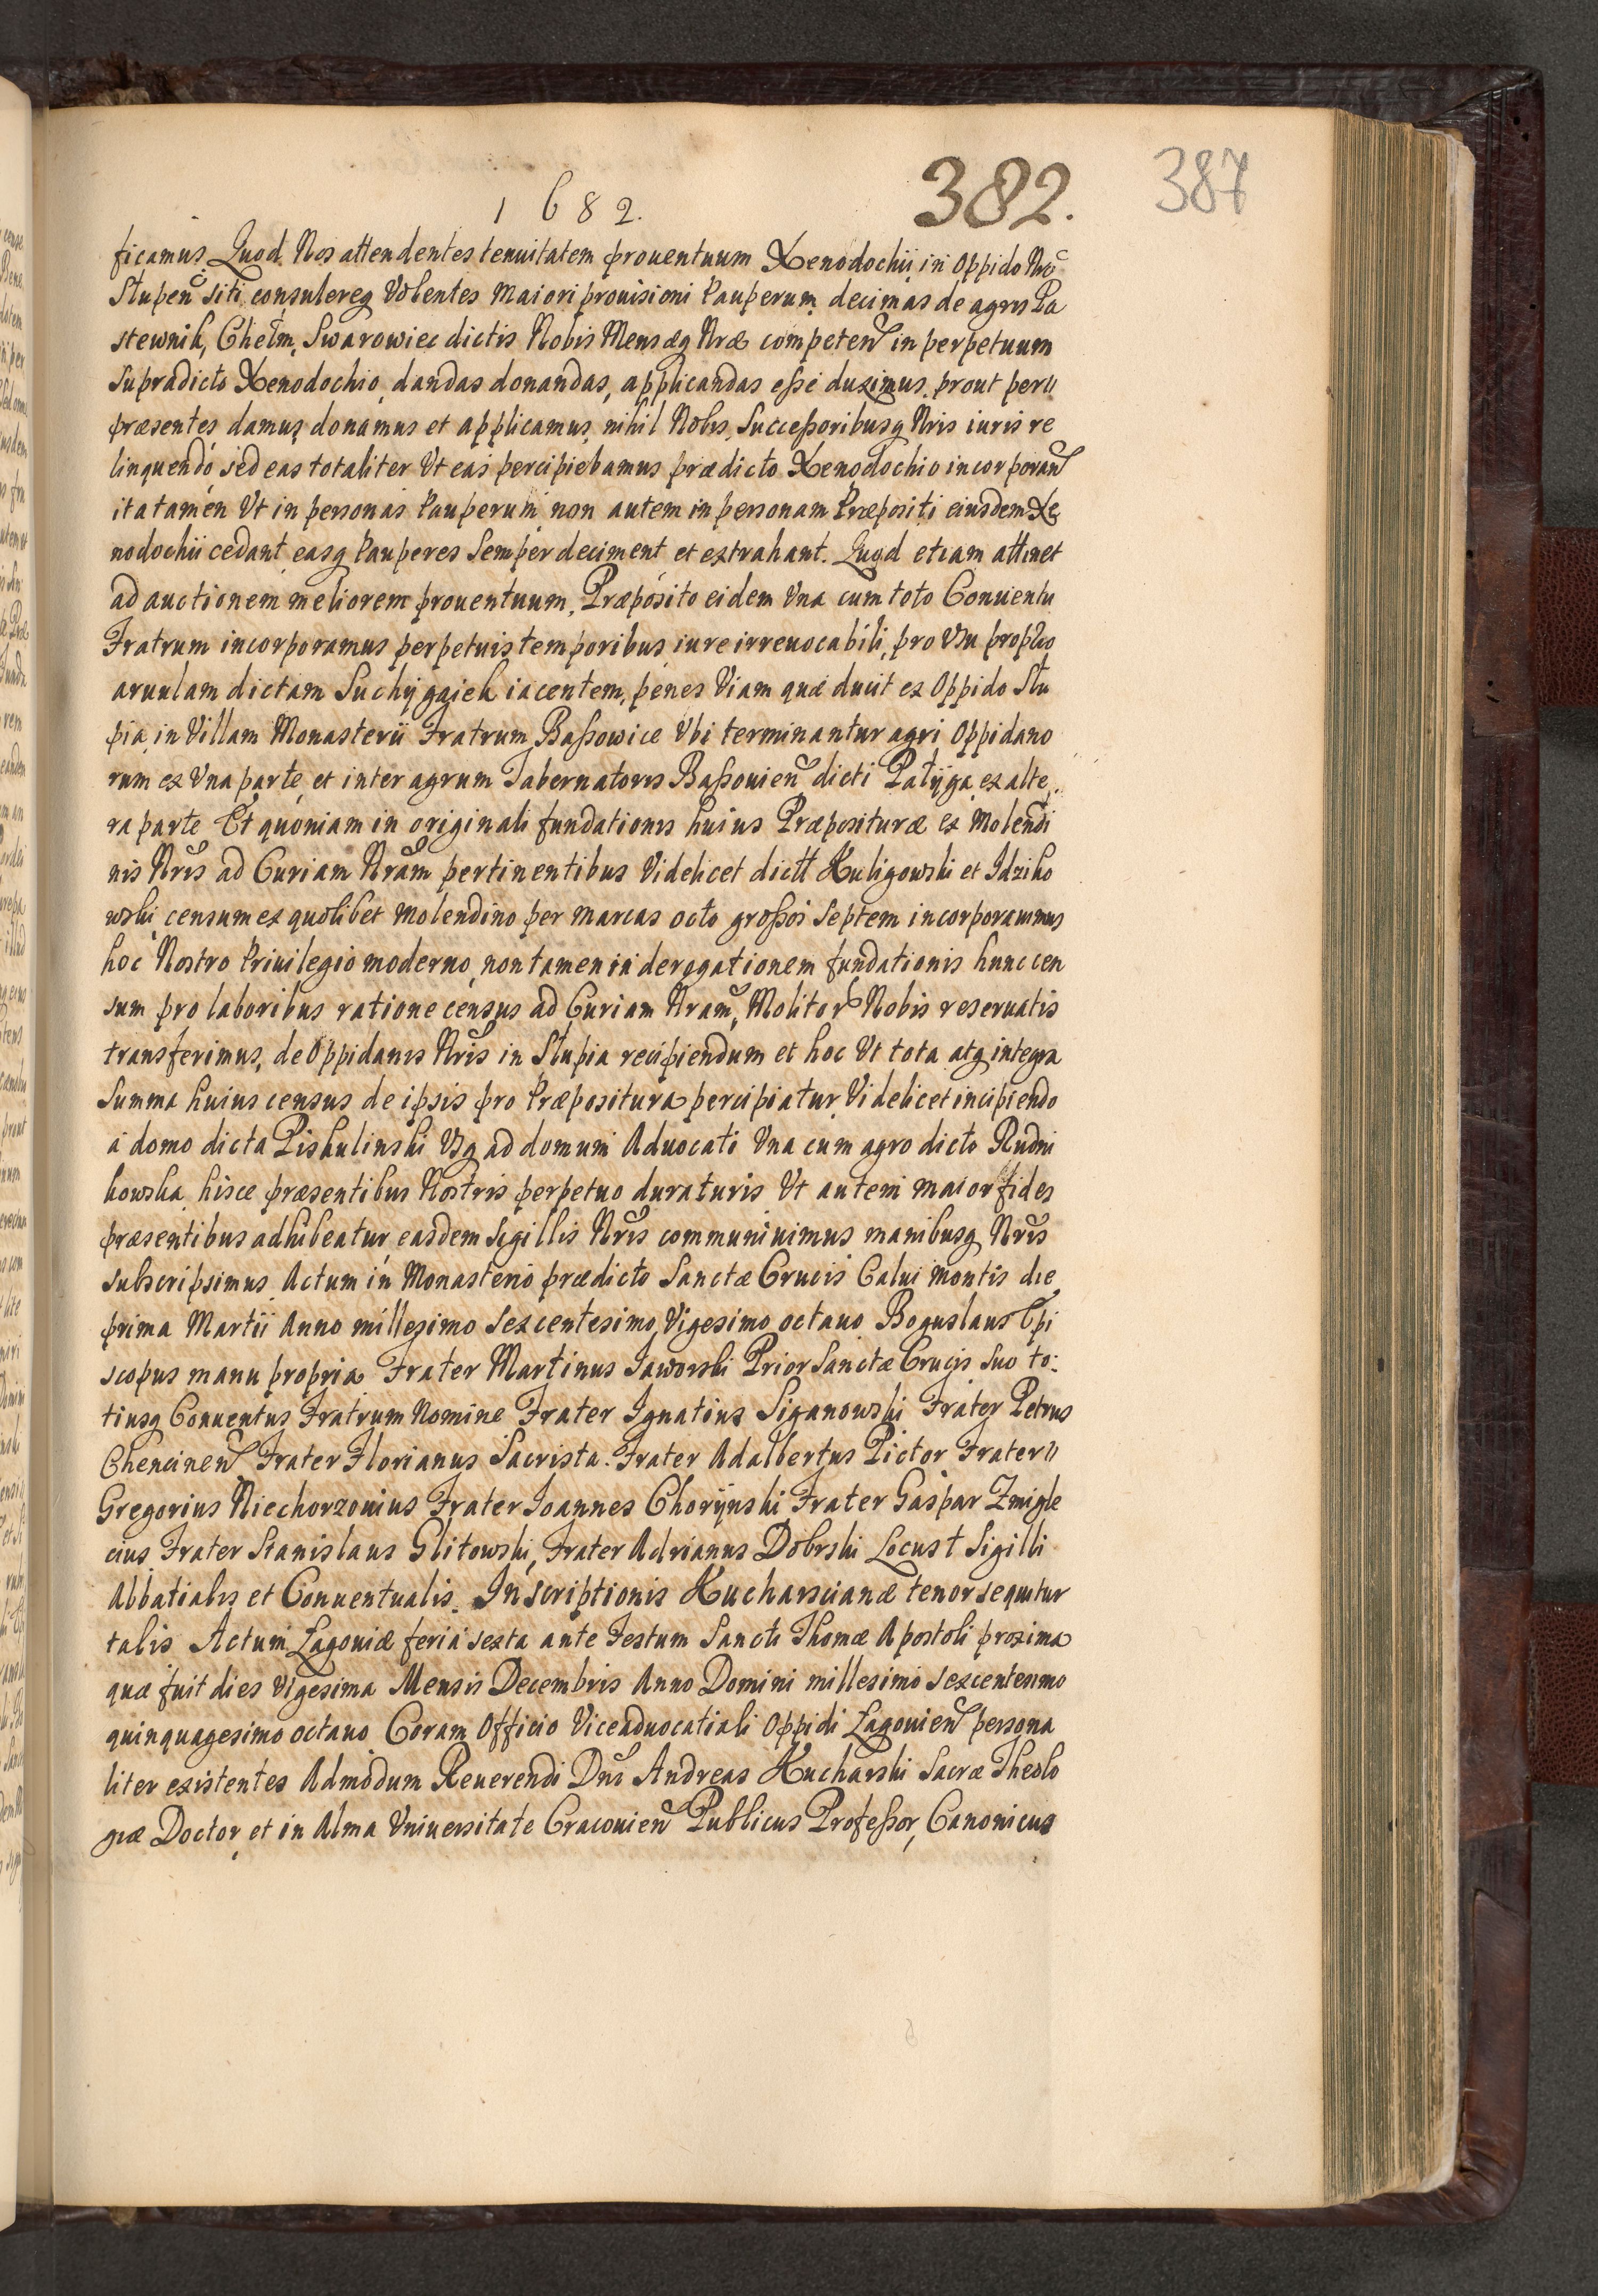 1682.
382.
387
ficamus Quod Nos attendentes tenuitatem prouentuum Xenodochii in Oppido Nro
Slupen siti consulereq Volentes Maiori prouisioni Pauperum decimas de agris Pa
stewnik, Chełm, Swarowiec dictis Nobis Mensæq Nræ competen in perpetuum
supradicto Xenodochio dandas donandas, applicandas esse duximus prout per
præsentes damus donamus et applicamus nihil Nobis, Successoribusq Nris iuris re
linquendo sed eas totaliter Vt eas percipiebamus prædicto Xenodochio incorporan
ita tamen Vt in personas Pauperum non autem in personam Præpositi eiusdem Xe
nodochii cedant easq Pauperes Semper deciment et extrahant. Quod etiam attinet
ad auctionem meliorem prouentuum, Præposito eidem Vna cum toto Conuentu
Fratrum incorporamus perpetuis temporibus iure irreuocabili, pro Vsu proprio
aruulam dictam Suchy gaiek iacentem, penes Viam quæ ducit ex Oppido Slu
pia in Villam Monasterii Fratrum Bassowice Vbi terminantur agri Oppidano
rum ex Vna parte et inter agrum Tabernatoris Bassouien dicti Patyga ex alte
ra parte Et quoniam in originali fundationis huius Præposituræ ex Molendi
nis Nris ad Curiam Nram pertinentibus Videlicet dictt Kuligowski et Idziko
wski censum ex quolibet Molendino per Marcas octo grossos Septem incorporauimus
hoc Nostro Priuilegio moderno non tamen in derogationem fundationis hunc cen
sum pro laboribus ratione census ad Curiam Nram, Molitor Nobis reseruatis
transferimus, de Oppidanis Nris in Slupia recipiendum et hoc Vt tota atq integra
Summa huius census de ipsis pro Præpositura percipiatur Videlicet incipiendo
a domo dicta Piskulinski Vsq ad domum Aduocati Vna cum agro dicto Rudni
kowska hisce præsentibus Nostris perpetuo duraturis Vt autem maior fides
præsentibus adhibeatur easdem Sigillis Nris communiuimus manibusq Nris
subscripsimus Actum in Monasterio prædicto Sanctæ Crucis Calui Montis die
prima Martii Anno millesimo Sexcentesimo Vigesimo octauo Boguslaus Epi
scopus manu propria Frater Martinus Jaworski Prior Sanctæ Crucis Suo to
tiusq Conuentus Fratrum Nomine Frater Ignatius Siganowski Frater Petrus
Chencinen Frater Florianus Sacrista. Frater Adalbertus Pictor Frater
Gregorius Niechorzouius Frater Joannes Chorynski Frater Gaspar Zmigle
cius Frater Stanislaus Glitowski, Frater Adrianus Dobrski Locus t Sigilli
Abbatialis et Conuentualis. Inscriptionis Kucharscianæ tenor sequitur
talis Actum Lagouiæ feria sexta ante Festum Sancti Thomæ Apostoli proxima
quæ fuit dies Vigesima Mensis Decembris Anno Domini millesimo sexcentesimo
quinquagesimo octauo Coram Officio Viceaduocatiali Oppidi Lagouien persona
liter existentes Admodum Reuerendi Dns Andreas Kucharski Sacræ Theolo
giæ Doctor, et in Alma Vniuersitate Cracouien Publicus Professor, Canonicus